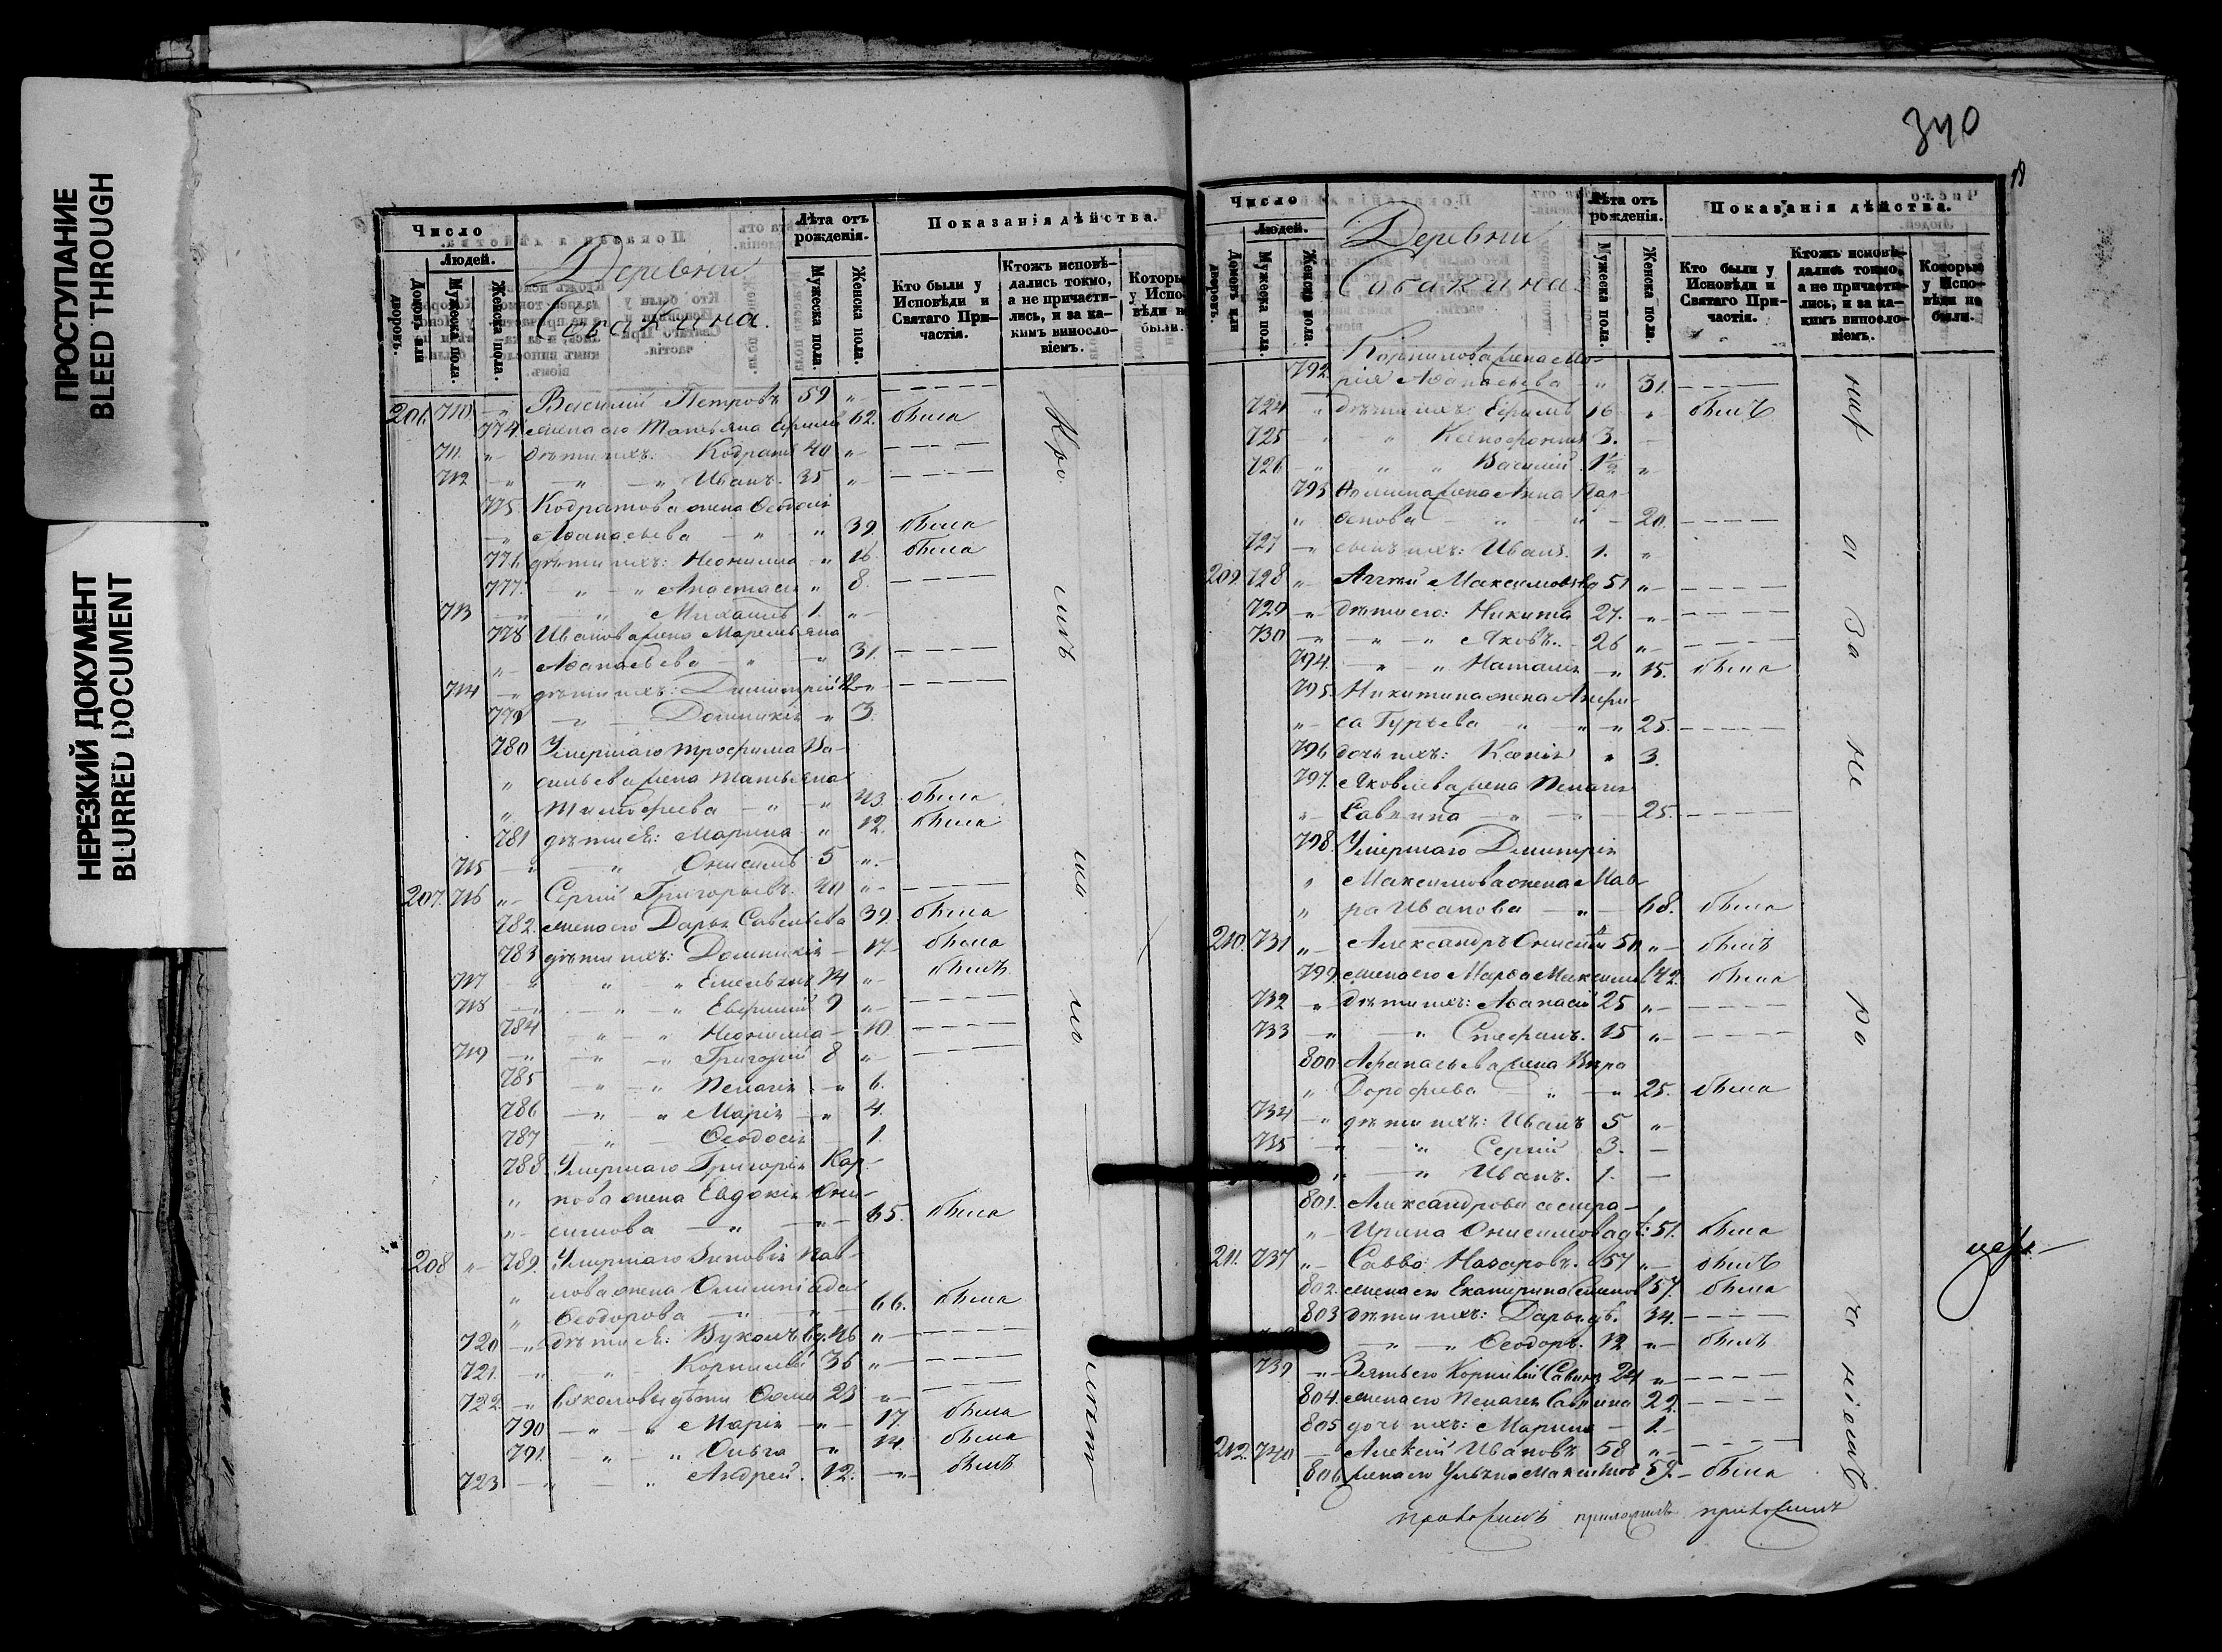 ПРОСТУПАНИЕ
BLEED THROUGH
НЕРЕЗКИЙ ДОКУМЕНТ
BLURRED DOCUMENT
Число
Людей.
Домовъ или дворовъ.
Мужеска пола.
Женска пола.
Деревни
Собакина.
Лѣта отъ рожденія.
Мужеска пола.
Женска пола.
Показанія дѣйства.
Кто были у Исповѣди и Святаго Причастія.
Ктожъ исповѣдались токмо, а не причастились, и за какимъ винословіемъ.
Которые у Исповѣди не были.
710 Василій Петровъ 59
774 жена его Татьяна 62. была
711 дѣти ихъ: Кодратъ 40
712 Иванъ. 35
775 Кодратова жена Ѳеодосія
Аѳанасьева 39. была
776 дѣти ихъ: Неонилла 16 была
777 Анастасія 8.
713 Михаилъ 1.
778 Иванова жена
Аѳанасьева 31.
714 дѣти ихъ: Димитрій 12
779 Домникія 3.
780 Умершаго Трофима Ва-
сильева жена Татьяна
Тимофеева 43. была
781 дѣти ея: Марина 12. была
715 Онисимъ 5
207. 716 Сергій Григорьевъ 40
782. жена его Дарья Савельева 39. была
783 дѣти ихъ: Домникія 17 была
717 Емельянъ 14 былъ
718 Евфимій 9
784 Неонилла 10.
719 Григорій 8
785 Пелагія 6.
786 Марія 4.
787 Ѳеодосія 1.
788 Умершаго Григорія Кар-
пова жена Евдокія Они-
симова 65. была
208 789. Умершаго Зиновія Пав-
лова жена Олимпіада
Ѳеодорова 66. была
720 дѣти ея: Вуколъ вд. 46
721. Корнилій 36
722. Вуколовы дѣти Ѳома 23
790 Марія 17. была
791. Ольга 14. была
723 Андрей. 12. былъ
340
Число
Людей.
Домовъ или дворовъ.
Мужеска пола.
Женска пола.
Деревни
Собакина.
Лѣта отъ рожденія.
Мужеска пола.
Женска пола.
Показанія дѣйства.
Кто были у Исповѣди и Святаго Причастія.
Ктожъ исповѣдались токмо, а не причастились, и за какимъ винословіемъ.
Которые у Исповѣди не были.
792. Корнилова жена Ма-
рія Аѳанасьева 31.
724 дѣти ихъ: 16 былъ
725 Ксенофонтъ 3.
726 Василій 1½
793 Ѳомина жена Анна Пар-
ѳенова 20.
727 сынъ ихъ: Иванъ. 1.
209. 728 Аггей Максимовъ вд 51
729 дѣти его: Никита 27.
730 Яковъ. 26
794. Наталія 15. была
795. Никитина жена Анфи-
са Гурьева 25.
796 дочь ихъ: Ксенія 3.
797. Яковлева жена Пелагія
Саввина 25.
798. Умершаго Димитрія
Максимова жена Мав-
ра Иванова 68. была
210. 731 Александръ Онисимовъ 50 былъ
799. жена его Марѳа Максимова 42. была
732 дѣти ихъ: Аѳанасій 25
733 Стефанъ. 15
800 Аѳанасьева жена Вѣра
Дорофеева 25. была
734 дѣти ихъ: Иванъ 5
735 Сергій 3.
Иванъ. 1.
801. Александрова сестра
Ирина Онисимова 51. была
211. 737 Савва Назаровъ. 57 былъ
802. жена его Екатерина 57. была
803 дѣти ихъ: Дарья 34.
Ѳеодоръ. 12 былъ
739 Зять его Корнилій Саввинъ 24
804. жена его Пелагія Саввина 22.
805 дочь ихъ: Марина 1.
212. 740 Алексій Ивановъ 58
806. жена его Ульяна Максимова 59. была